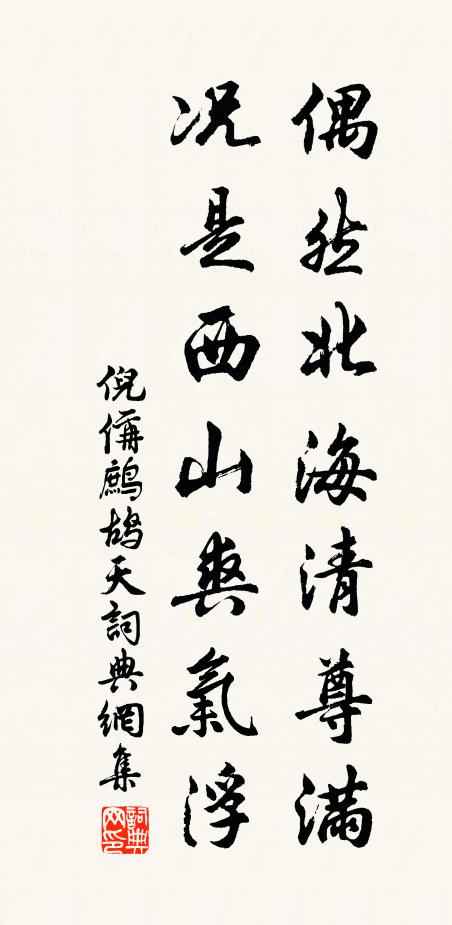 偶然北海清尊满
况是西山爽氣浮
倪偁鷓鴣天詞典網集
詞典网印